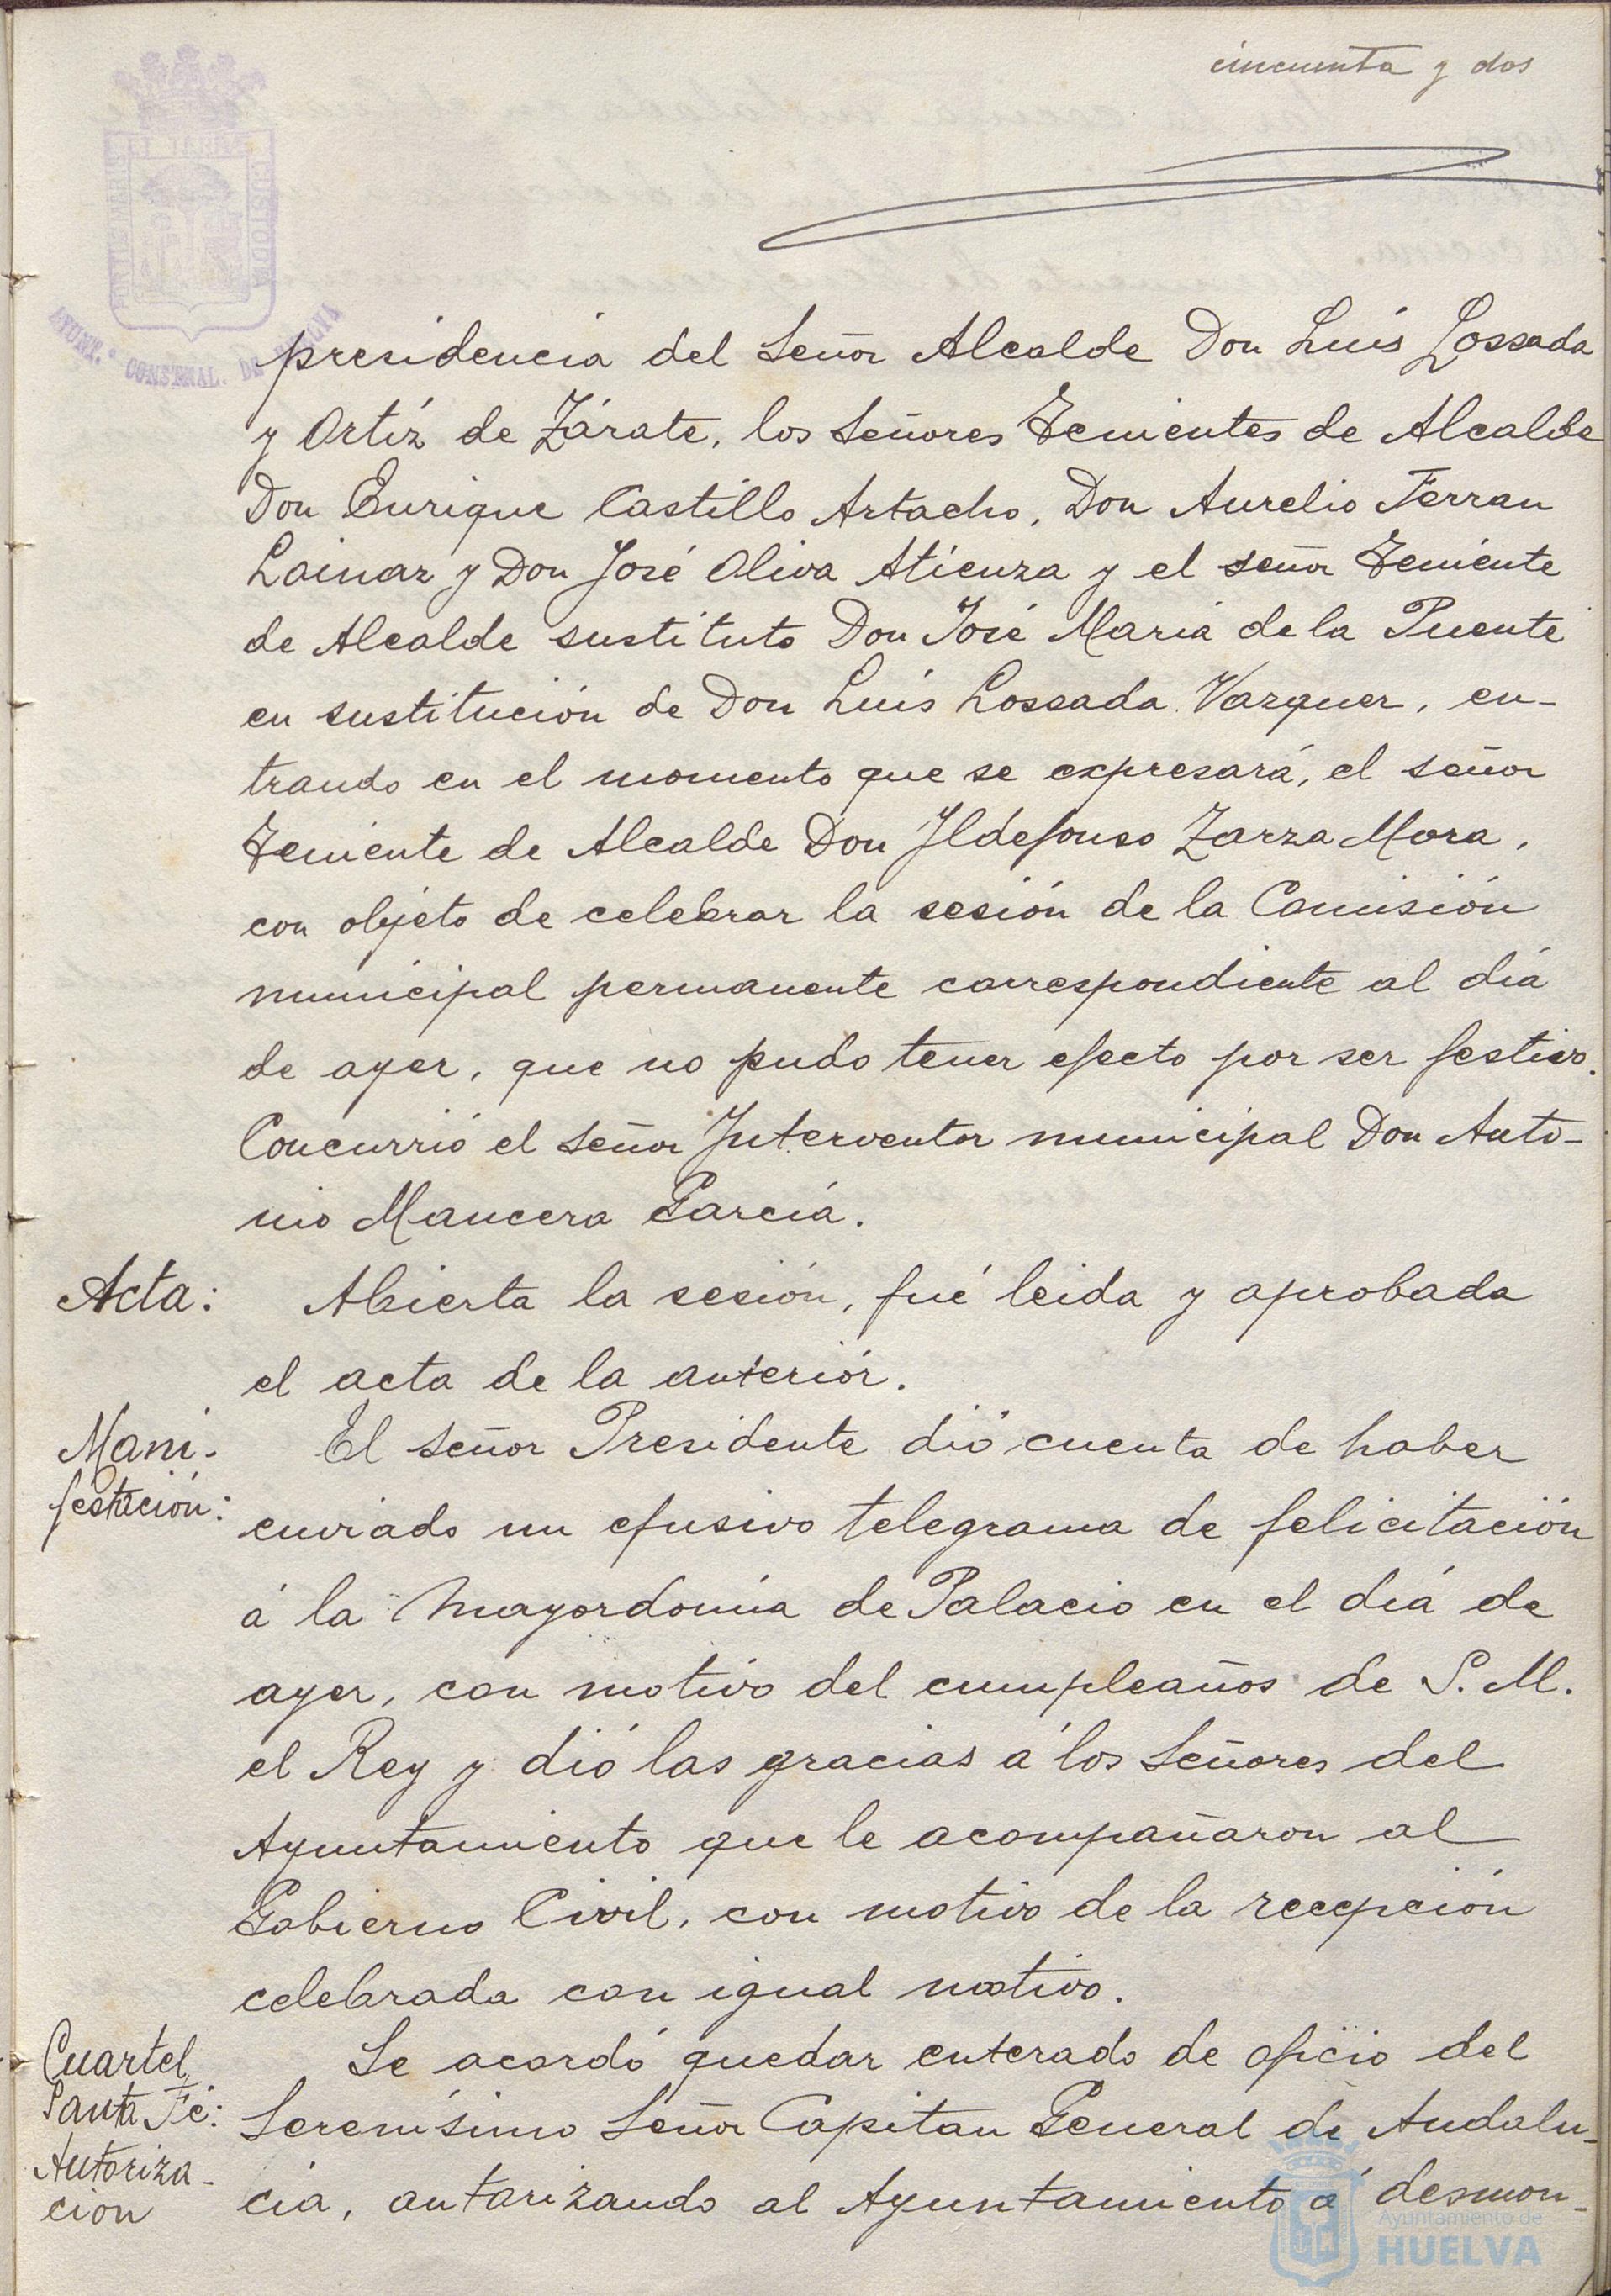 cincuenta y dos
PORTUS MARIS
ET TERRÆ
CUSTODIA
AYUNT.º CONST
presidencia del Señor Alcalde Don Luis Lossada
y Ortíz de Zárate, los Señores Tenientes de Alcalde
Don Enrique Castillo Artacho, Don Aurelio Ferran
Lainar y Don José Oliva Atienza y el señor Teniente
de Alcalde sustituto Don José Maria de la Puente
en sustitución de Don Luis Lossada Vazquer, en-
trando en el momento que se expresará, el señor
Teniente de Alcalde Don Ildefonso Zarza Mora,
con objeto de celebrar la sesión de la Comisión
municipal permanente correspondiente al día
de ayer, que no pudo tener efecto por ser festivo.
Concurrió el Señor Interventor municipal Don Anto-
nio Mancera García.
Acta: Abierta la sesión, fué leida y aprobada
el acta de la anteriór.
Mani- El Señor Presidente dió cuenta de haber
festación: enviado un efusivo telegrama de felicitación
á la Mayordomía de Palacio en el día de
ayer, con motivo del cumpleaños de S. M.
el Rey y dió las gracias á los Señores del
Ayuntamiento que le acompañaron al
Gobierno Civil, con motivo de la recepción
celebrada con igual motivo.
Cuartel Se acordó quedar enterado de oficio del
Santa Fé: Serenísimo Señor Capitan General de Andalu-
Autoriza- cía, autorizando al Ayuntamiento á desmon-
ción
Ayuntamiento de
HUELVA